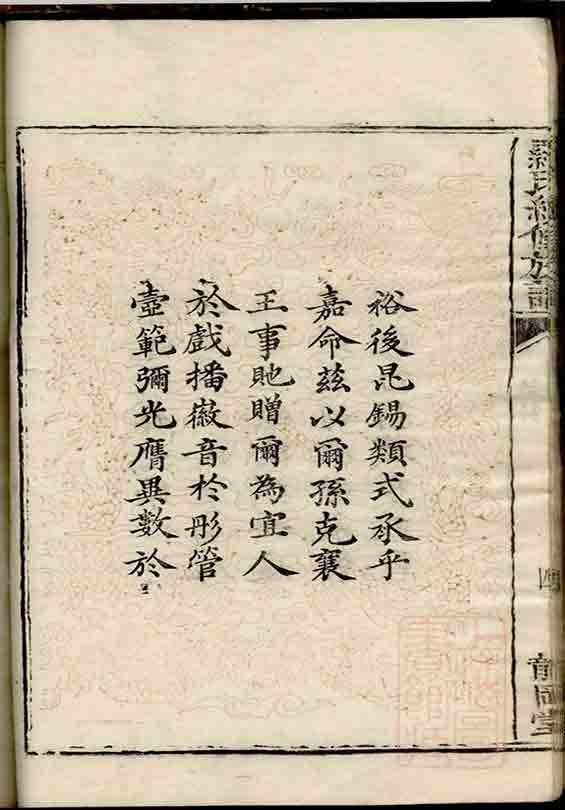 裕後昆錫類式承乎
嘉命茲以爾孫克襄
王事貤贈爾為宜人
於戲播徽音於彤管
壼範彌光膺異數於
羅氏續修族譜
四